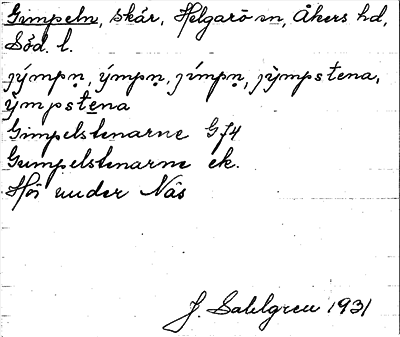 Gimpeln, skär, Helgarö sn, Åkers hd,
Söd. l.
jýmpṇ, ýmpṇ, jímpṇ, jỳmpstena,
ỳmpstena
Gimpelstenarne G74
Gumpelstenarne ek.
Hör under Näs
J. Sahlgren 1931